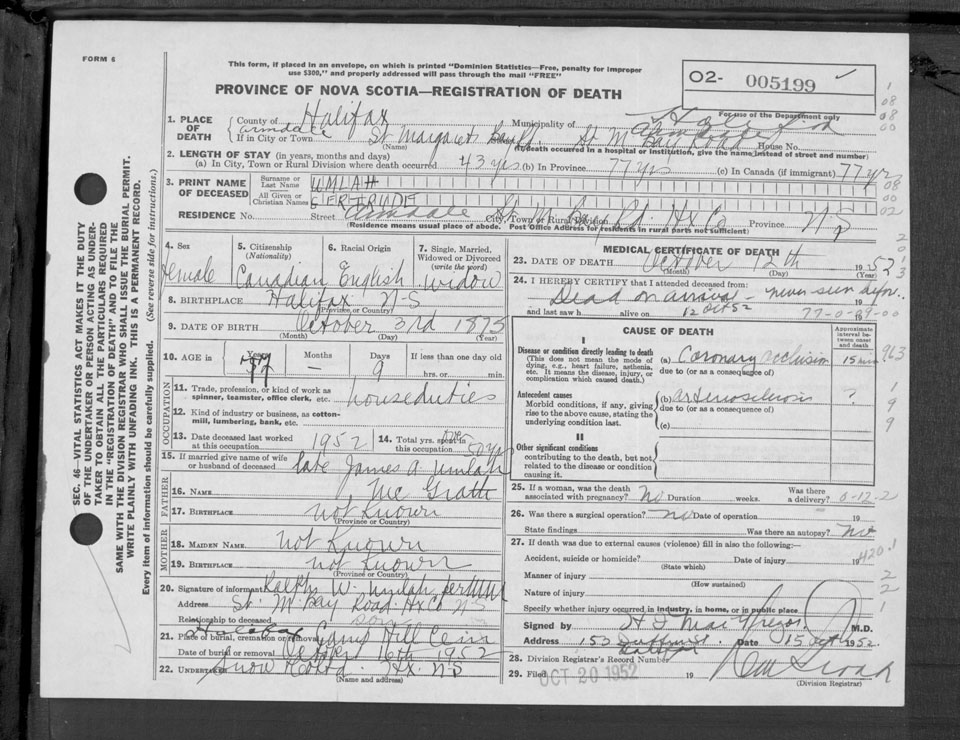 FORM 6
This form, if placed in an envelope, on which is printed "Dominion Statistics—Free, penalty for improper
use $300," and properly addressed will pass through the mail "FREE"
PROVINCE OF NOVA SCOTIA—REGISTRATION OF DEATH
O2- 005199
For use of the Department only
1. PLACE OF DEATH
County of Halifax Municipality of
If in City or Town Armdale St. Margarets Bay Rd. St M Bay Road House No.
(Name) (If death occurred in a hospital or institution, give the name instead of street and number)
2. LENGTH OF STAY (in years, months and days)
(a) In City, Town or Rural Division where death occurred 43 yrs (b) In Province 77 yrs (c) In Canada (if immigrant) 77 yrs
3. PRINT NAME OF DECEASED
Surname or Last Name UMLAH
All Given or Christian Names GERTRUDE
RESIDENCE No. Street Armdale St M Bay Rd. Hx Co Province N S
City, Town or Rural Division
(Residence means usual place of abode. Post Office Address for residents in rural parts not sufficient)
4. Sex
female
5. Citizenship
(Nationality)
Canadian
6. Racial Origin
English
7. Single, Married,
Widowed or Divorced
(write the word)
Widow
8. BIRTHPLACE Halifax N-S
(Province or Country)
9. DATE OF BIRTH October 3rd 1875
(Month) (Day) (Year)
10. AGE is
Years Months Days If less than one day old
77 — 9 hrs. or min.
OCCUPATION
11. Trade, profession, or kind of work as
spinner, teamster, office clerk, etc. houseduties
12. Kind of industry or business, as cotton-
mill, lumbering, bank, etc.
13. Date deceased last worked
at this occupation 1952
14. Total yrs. spent in
this occupation 50 yrs
15. If married give name of wife
or husband of deceased late James A Umlah
FATHER
16. NAME Mc Grath
17. BIRTHPLACE not Known
(Province or Country)
MOTHER
18. MAIDEN NAME not Known
19. BIRTHPLACE not Known
(Province or Country)
20. Signature of informant Ralph W. Umlah
Address St. M Bay Road. Hx Co N-S
Relationship to deceased son
21. Place of burial, cremation or removal Halifax Camp Hill Cem
Date of burial or removal October 16th 1952
22. UNDERTAKER Snow Co Ltd. Hx. N-S
(Name and address)
MEDICAL CERTIFICATE OF DEATH
23. DATE OF DEATH October 12th 1952
(Month) (Day) (Year)
24. I HEREBY CERTIFY that I attended deceased from:
Dead on arrival – never seen before
and last saw h alive on 12 Oct 52 19
77-0-09-00
CAUSE OF DEATH
Approximate interval between onset and death
I
Disease or condition directly leading to death
(This does not mean the mode of
dying, e.g., heart failure, asthenia,
etc. It means the disease, injury, or
complication which caused death.)
(a) Coronary occlusion 15 min
due to (or as a consequence of)
Antecedent causes
Morbid conditions, if any, giving
rise to the above cause, stating the
underlying condition last.
(b) arteriosclerosis ?
due to (or as a consequence of)
(c)
II
Other significant conditions
contributing to the death, but not
related to the disease or condition
causing it.
25. If a woman, was the death
associated with pregnancy? No Duration weeks. Was there
a delivery?
26. Was there a surgical operation? no Date of operation 19
State findings Was there an autopsy? No
27. If death was due to external causes (violence) fill in also the following:—
Accident, suicide or homicide? Date of injury 19
(State which)
420.1
Manner of injury
(How sustained)
Nature of injury
Specify whether injury occurred in industry, in home, or in public place
Signed by H D MacGregor M.D.
Address 153 Date 15 Oct 1952
28. Division Registrar's Record Number
29. Filed OCT 20 1952 19
(Division Registrar)
SEC. 46 VITAL STATISTICS ACT MAKES IT THE DUTY
OF THE UNDERTAKER OR PERSON ACTING AS UNDER-
TAKER TO OBTAIN ALL THE PARTICULARS REQUIRED
IN THE "REGISTRATION OF DEATH" AND TO FILE THE
SAME WITH THE DIVISION REGISTRAR WHO SHALL ISSUE THE BURIAL PERMIT.
WRITE PLAINLY WITH UNFADING INK. THIS IS A PERMANENT RECORD.
Every item of information should be carefully supplied. (See reverse side for instructions.)